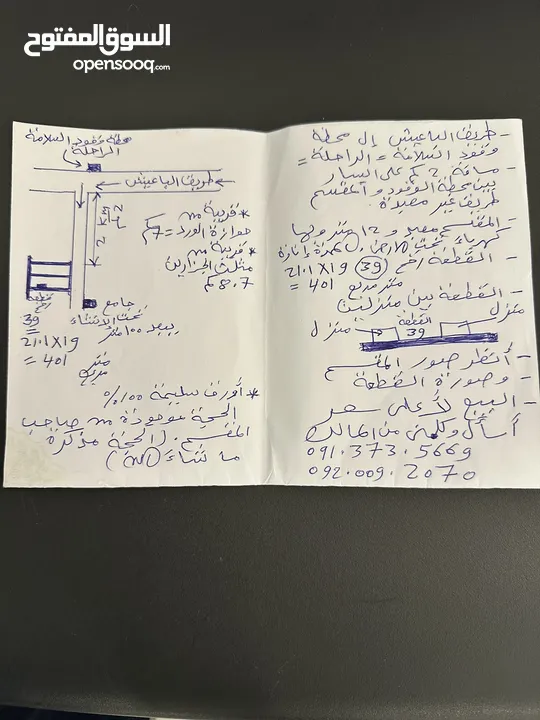 السوق المفتوح
opensooq.com
- طريق الباعيش إلى محطة
وقود السلامة = الراحلة =
- مسافة 2 كم على اليسار
بين محطة الوقود والمقسم
طريق غير معبدة.
- المقسم معبد و 12 متر وبها
كهرباء تحت الأرض
- القطعة رقم (39) 21.1X19
= 401 متر مربع
- القطعة بين منزلين
منزل
القطعة
39
منزل
- أنظر صور المقسم
- وصورة القطعة
- البيع لأعلى سعر
من المالك
091.373.5669
092.009.2070
محطة وقود السلامة
الراحلة
طريق الباعيش
2 كم
* قريبة من
جزارة الورد = 7 كم
* قريبة من
مثلث الجزارين
8.7 كم
جامع
تحت الإنشاء
يبعد 100 متر
قطعة
رقم
39
21.1X19
= 401
متر
مربع
* أوراق سليمة 100%
الحجة موجودة من صاحب
المقسم.